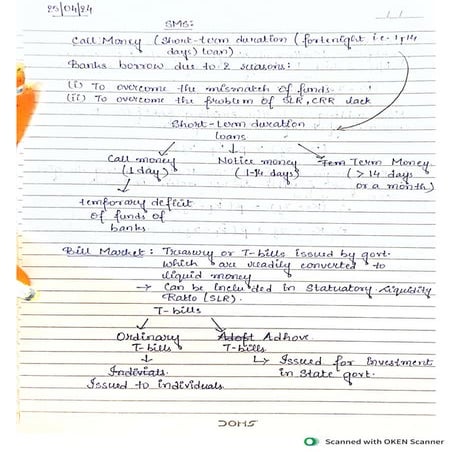 25/04/24
SMS:
Call Money (Short-term duration (fortenight i.e. 1,14
days) loan).
Banks borrow due to 2 reasons:
(i) To overcome the mismatch of funds.
(ii) To overcome the problem of SLR, CRR lack
Short-term duration
loans
Call money Notice money Term Money
(1 day) (1-14 days) (> 14 days
or a month)
temporary deficit
of funds of
banks
Bill Market: Treasury or T-bills issued by govt.
which are readily converted to
liquid money
→ Can be included in Statuatory Liquidity
Ratio (SLR).
T-bills
Ordinary Adhove
T-bills T-bills
Indivials ↳ Issued for investment
Issued to individuals in State govt.
DOMS
Scanned with OKEN Scanner